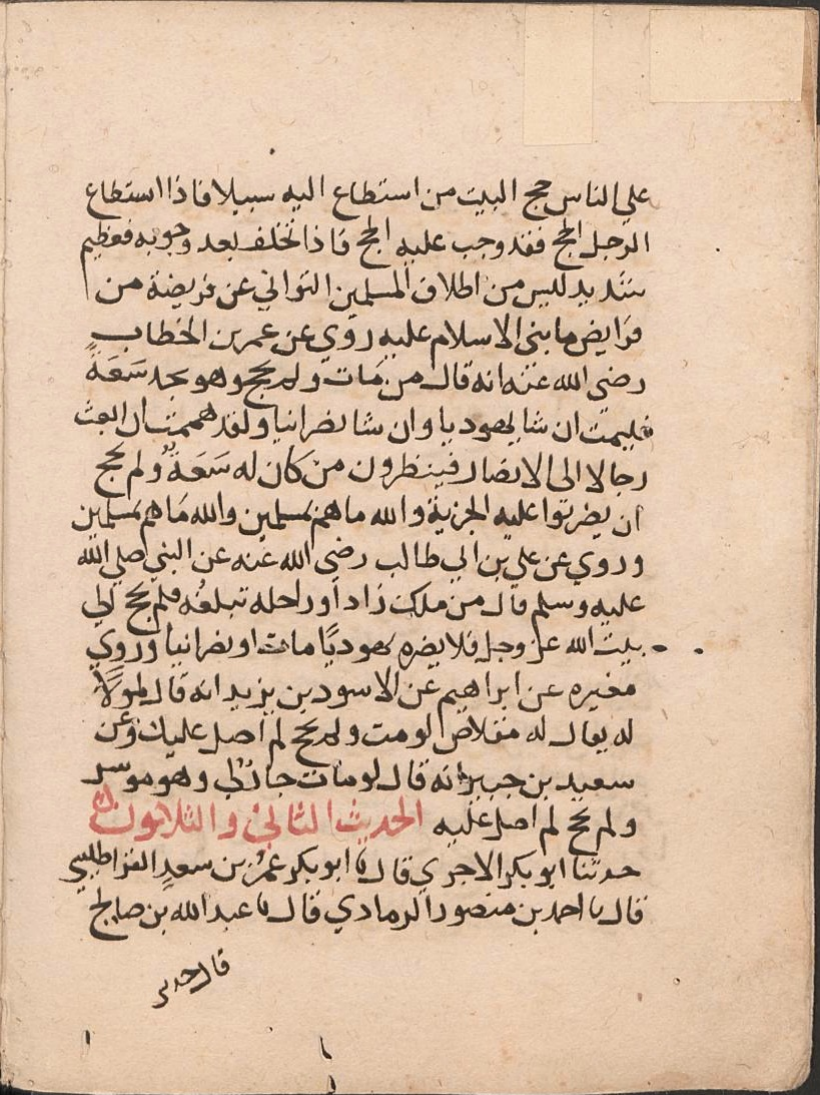 علي الناس حج البيت من استطاع اليه سبيلا فاذا استطاع
الرجل الحج فقد وجب عليه الحج فاذا تخلف بعد وجوبه فعظيم
شديد لليس من اطلاق المسلمين التواني عن فريضة من
فرايض ما بني الاسلام عليه روي عن عمر بن الخطاب
رضى الله عنه انه قال من مات ولم يحج وهو يجد سَعَةً
فليمت ان شا يهوديا وان شا نصرانيا ولقد هممت ان ابعث
رجالا الى الامصار فينظرون من كان له سَعَةً ولم يحج
ان يضربوا عليه الجزية والله ما هم بمسلمين والله مَا هم بمسلمين
وروي عن علي بن ابي طالب رضي الله عنه عن النبي صلي الله
عليه وسلم قال من ملك زاداً وراحله تبلغه فلم يحج الي
بيت الله عز وجل فلا يضره يهوديًا مات او نصرانياً وروي
مغيره عن ابراهيم عن الاسود بن يزيد انه قال لمولاً
له يقال له مقلاص لو مت ولم يحج لم اصل عليك وعن
سعيد بن جبير انه قال لو مات جار لي وهو موسر
ولم يحج لم اصل عليه الحديث الثاني والثلاثون
حدثنا ابو بكر الاجري قال نا ابو بكر عمر بن سعد القراطيسي
قال نا احمد بن منصور الرمادي قال نا عبد الله بن صالح
قال حدثني